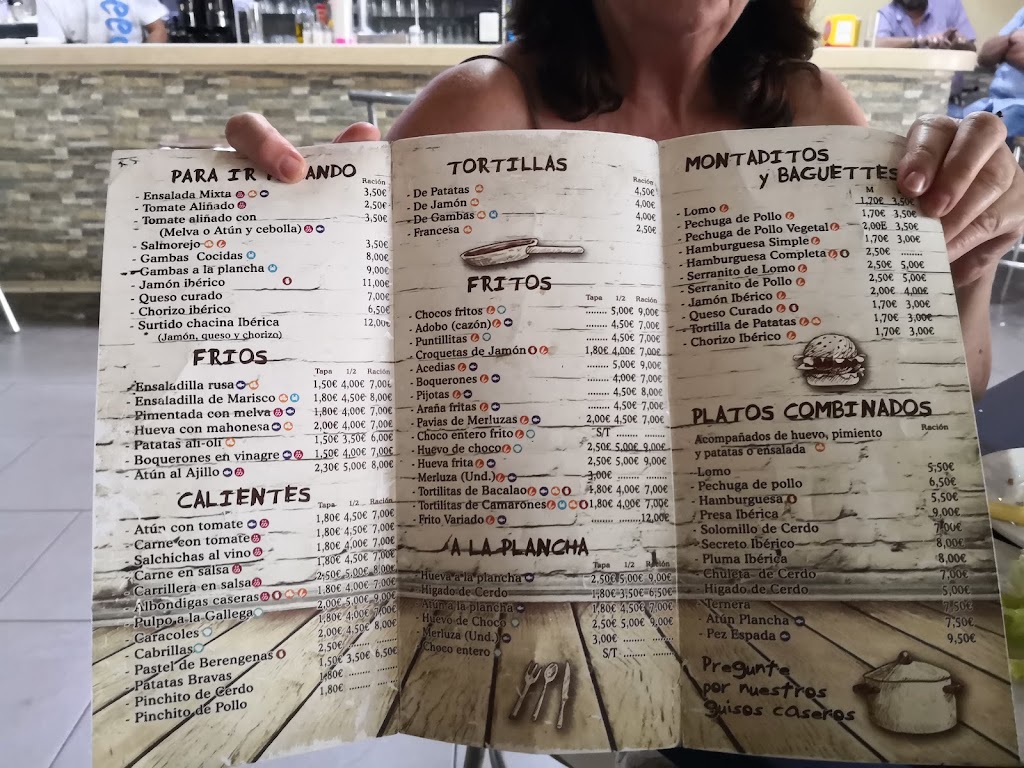 PARA IR ANDO
Ración
- Ensalada Mixta 3,50€
- Tomate Aliñado 2,50€
- Tomate aliñado con 3,50€
(Melva o Atún y cebolla)
- Salmorejo 3,50€
- Gambas Cocidas 8,00€
- Gambas a la plancha 9,00€
- Jamón ibérico 11,00€
- Queso curado 7,00€
- Chorizo ibérico 6,50€
- Surtido chacina Ibérica 12,00€
(Jamón, queso y chorizo)
FRIOS
Tapa 1/2 Ración
- Ensaladilla rusa 1,50€ 4,00€ 7,00€
- Ensaladilla de Marisco 1,80€ 4,50€ 8,00€
- Pimentada con melva 1,80€ 4,00€ 7,00€
- Hueva con mahonesa 2,00€ 4,00€ 7,00€
- Patatas ali-oli 1,50€ 3,50€ 6,00€
- Boquerones en vinagre 1,50€ 4,00€ 7,00€
- Atún al Ajillo 2,30€ 5,00€ 8,00€
CALIENTES
Tapa 1/2 Ración
- Atún con tomate 1,80€ 4,50€ 7,00€
- Carne con tomate 1,80€ 4,50€ 7,00€
- Salchichas al vino 1,80€ 4,00€ 7,00€
- Carne en salsa 1,80€ 4,50€ 7,00€
- Carrillera en salsa 2,50€ 5,00€ 8,00€
- Albóndigas caseras 1,80€ 4,00€ 7,00€
- Pulpo a la Gallega 2,00€ 5,00€ 9,00€
- Caracoles
- Cabrillas
- Pastel de Berengenas
- Patatas Bravas
- Pinchito de Cerdo 1,80€
- Pinchito de Pollo 1,80€
TORTILLAS
Ración
- De Patatas 4,50€
- De Jamón 4,00€
- De Gambas 4,00€
- Francesa 2,50€
FRITOS
Tapa 1/2 Ración
- Chocos fritos ........ 5,00€ 9,00€
- Adobo (cazón) ........ 4,50€ 7,00€
- Puntillitas ........ 4,50€ 7,00€
- Croquetas de Jamón 1,80€ 4,00€ 7,00€
- Acedias ........ 5,00€ 9,00€
- Boquerones ........ 4,00€ 7,00€
- Pijotas ........ 4,50€ 8,00€
- Araña fritas ........ 4,50€ 7,00€
- Pavias de Merluzas 2,00€ 4,50€ 7,00€
- Choco entero frito S/T ........ ........
- Huevo de choco 2,50€ 5,00€ 9,00€
- Hueva frita 2,50€ 5,00€ 9,00€
- Merluza (Und.) 3,00€ ........ ........
- Tortilitas de Bacalao 1,80€ 4,00€ 7,00€
- Tortilitas de Camarones 1,80€ 4,00€ 7,00€
- Frito Variado ........ ........ 12,00€
A LA PLANCHA
Tapa 1/2 Ración
- Hueva a la plancha 2,50€ 5,00€ 9,00€
- Higado de Cerdo 1,80€ 3,50€ 6,50€
- Atún a la plancha 1,80€ 4,50€ 7,00€
- Huevo de Choco 2,50€ 5,00€ 9,00€
- Merluza (Und.) 3,00€ ........ ........
- Choco entero S/T ........ ........
MONTADITOS
y BAGUETTES
M
- Lomo 1,70€ 3,50€
- Pechuga de Pollo 1,70€ 3,50€
- Pechuga de Pollo Vegetal 2,00€ 3,50€
- Hamburguesa Simple 1,70€ 3,00€
- Hamburguesa Completa 2,50€ ........
- Serranito de Lomo 2,50€ 5,00€
- Serranito de Pollo 2,50€ 5,00€
- Jamón Ibérico 2,00€ 4,00€
- Queso Curado 1,70€ 3,00€
- Tortilla de Patatas 1,70€ 3,00€
- Chorizo Ibérico 1,70€ 3,00€
PLATOS COMBINADOS
Ración
Acompañados de huevo, pimiento
y patatas o ensalada
- Lomo 5,50€
- Pechuga de pollo 6,50€
- Hamburguesa 5,50€
- Presa Ibérica 9,00€
- Solomillo de Cerdo 7,00€
- Secreto Ibérico 8,00€
- Pluma Ibérica 8,00€
- Chuleta de Cerdo 7,00€
- Higado de Cerdo 5,00€
- Ternera 7,50€
- Atún Plancha 7,50€
- Pez Espada 9,50€
Pregunte
por nuestros
guisos caseros